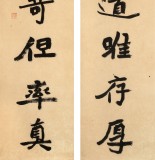 道唯存厚
奇但率真